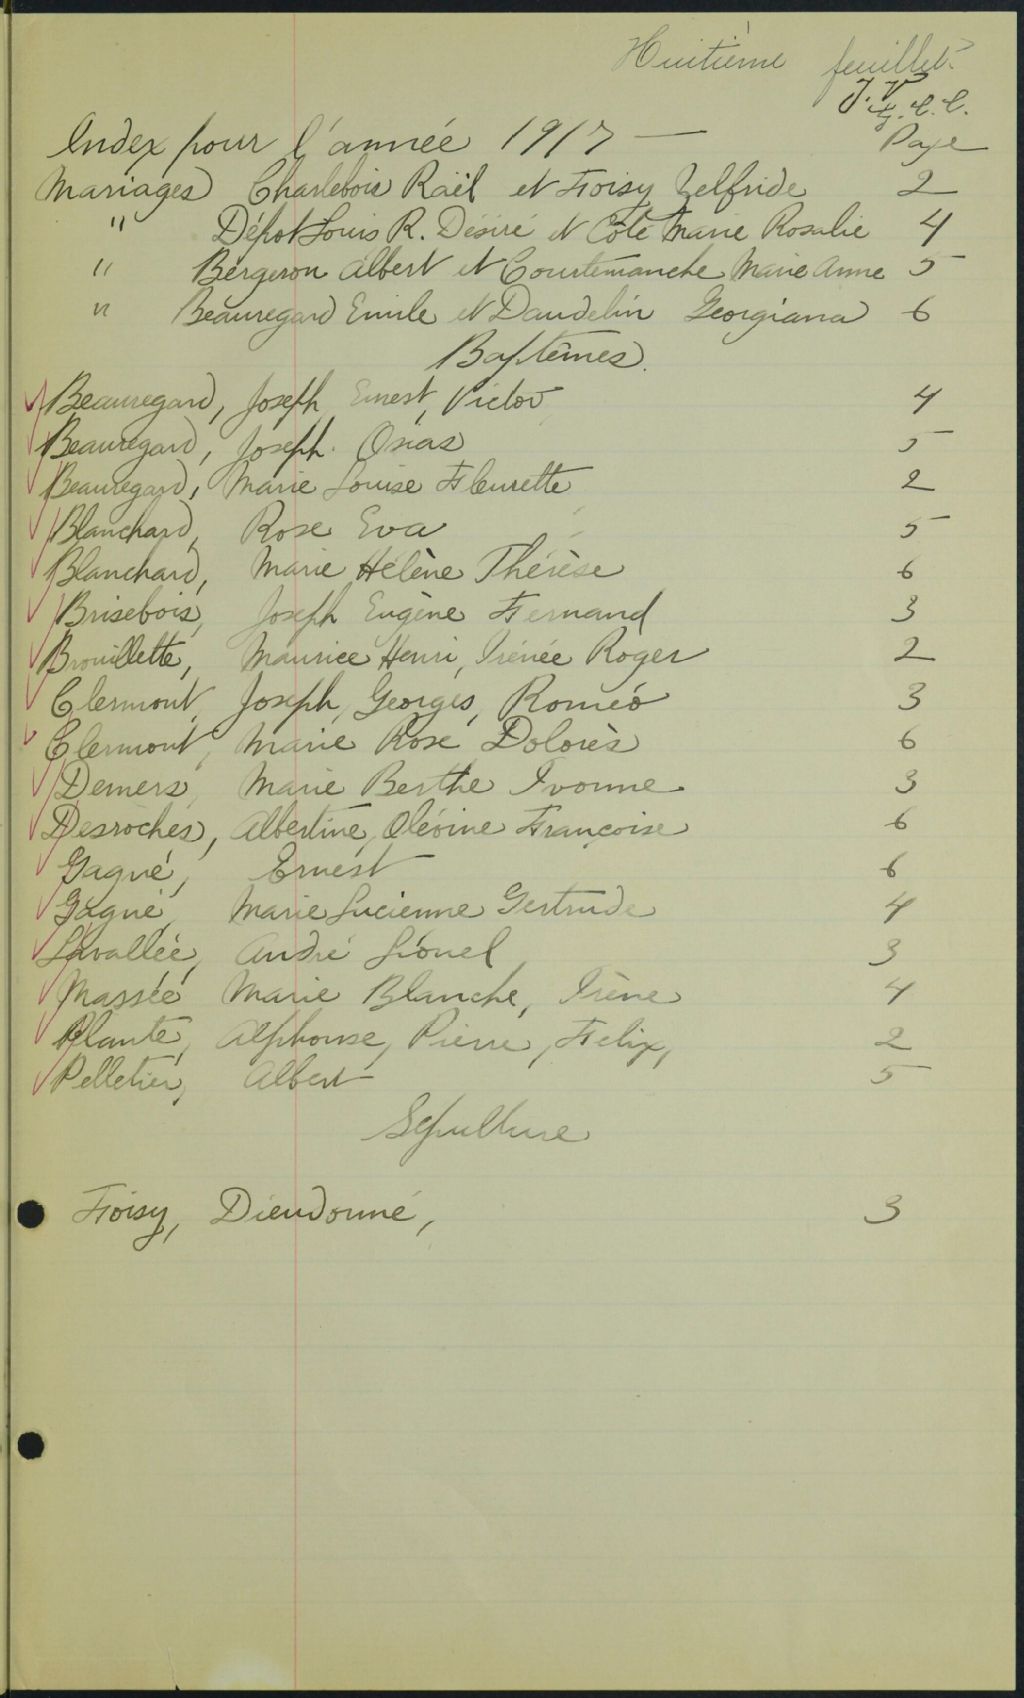 Huitième feuillet.
J. V.
G. C. C.
Index pour l'année 1917 — Page
Mariages Charlebois Raël et Foisy Zelfride 2
" Dépot Louis R. Désiré et Coté Marie Rosalie 4
" Bergeron Albert et Courtemanche Marie Anne 5
" Beauregard Emile et Daudelin Georgiana 6
Baptêmes.
Beauregard, Joseph Ernest, Victor 4
Beauregard, Joseph Osias 5
Beauregard, Marie Louise Fleurette 2
Blanchard, Rose Eva 5
Blanchard, Marie Hélène Thérèse 6
Brisebois, Joseph Eugène Fernand 3
Brouillette, Maurice Henri, Irénée Roger 2
Clermont, Joseph, Georges, Roméo 3
Clermont, Marie Rose Dolorès 6
Demers, Marie Berthe Yvonne 3
Desroches, Albertine, Olévine Françoise 6
Gagné, Ernest 6
Gagné, Marie Lucienne Gertrude 4
Lavallée, André Lionel 3
Massée Marie Blanche, Irène 4
Plante, Alphonse, Pierre, Felix, 2
Pelletier, Albert 5
Sepulture
Foisy, Dieudonné, 3